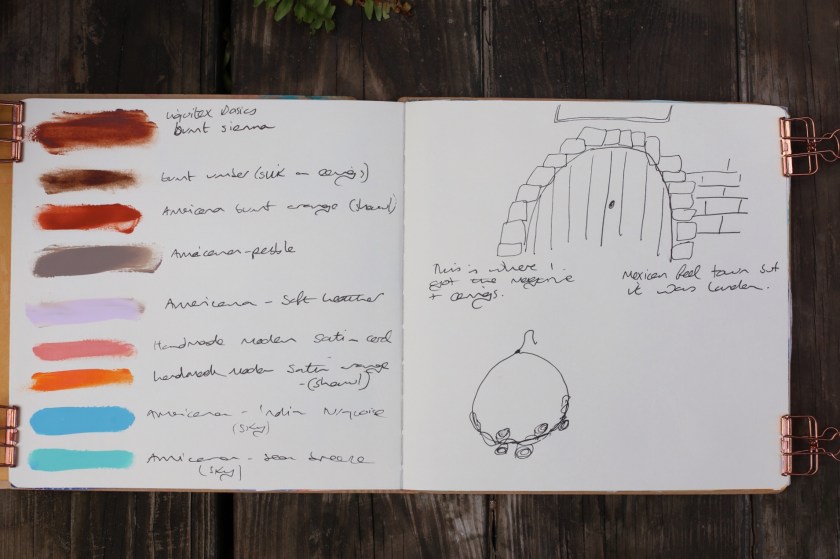 Liquitex Basics
burnt sienna
burnt umber (silk on earrings)
Americana burnt orange (shawl)
Americana - pebble
Americana - Soft heather
Handmade Modern Satin coral
handmade Modern Satin orange
- (shawl)
Americana - indian turquoise
(sky)
Americana - sea breeze
(sky)
This is where I
got the
+ earrings.
Mexican feel town but
it was London.